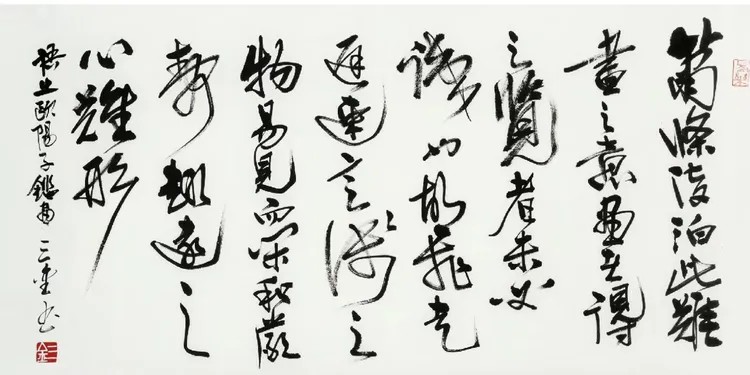 蕭條淡泊此難
畫之意畫者得
之覽者未必
識也故飛走
遲速意淺之
物易見而閑和嚴
靜趣遠之
心難形
歐陽子鑑畫 三